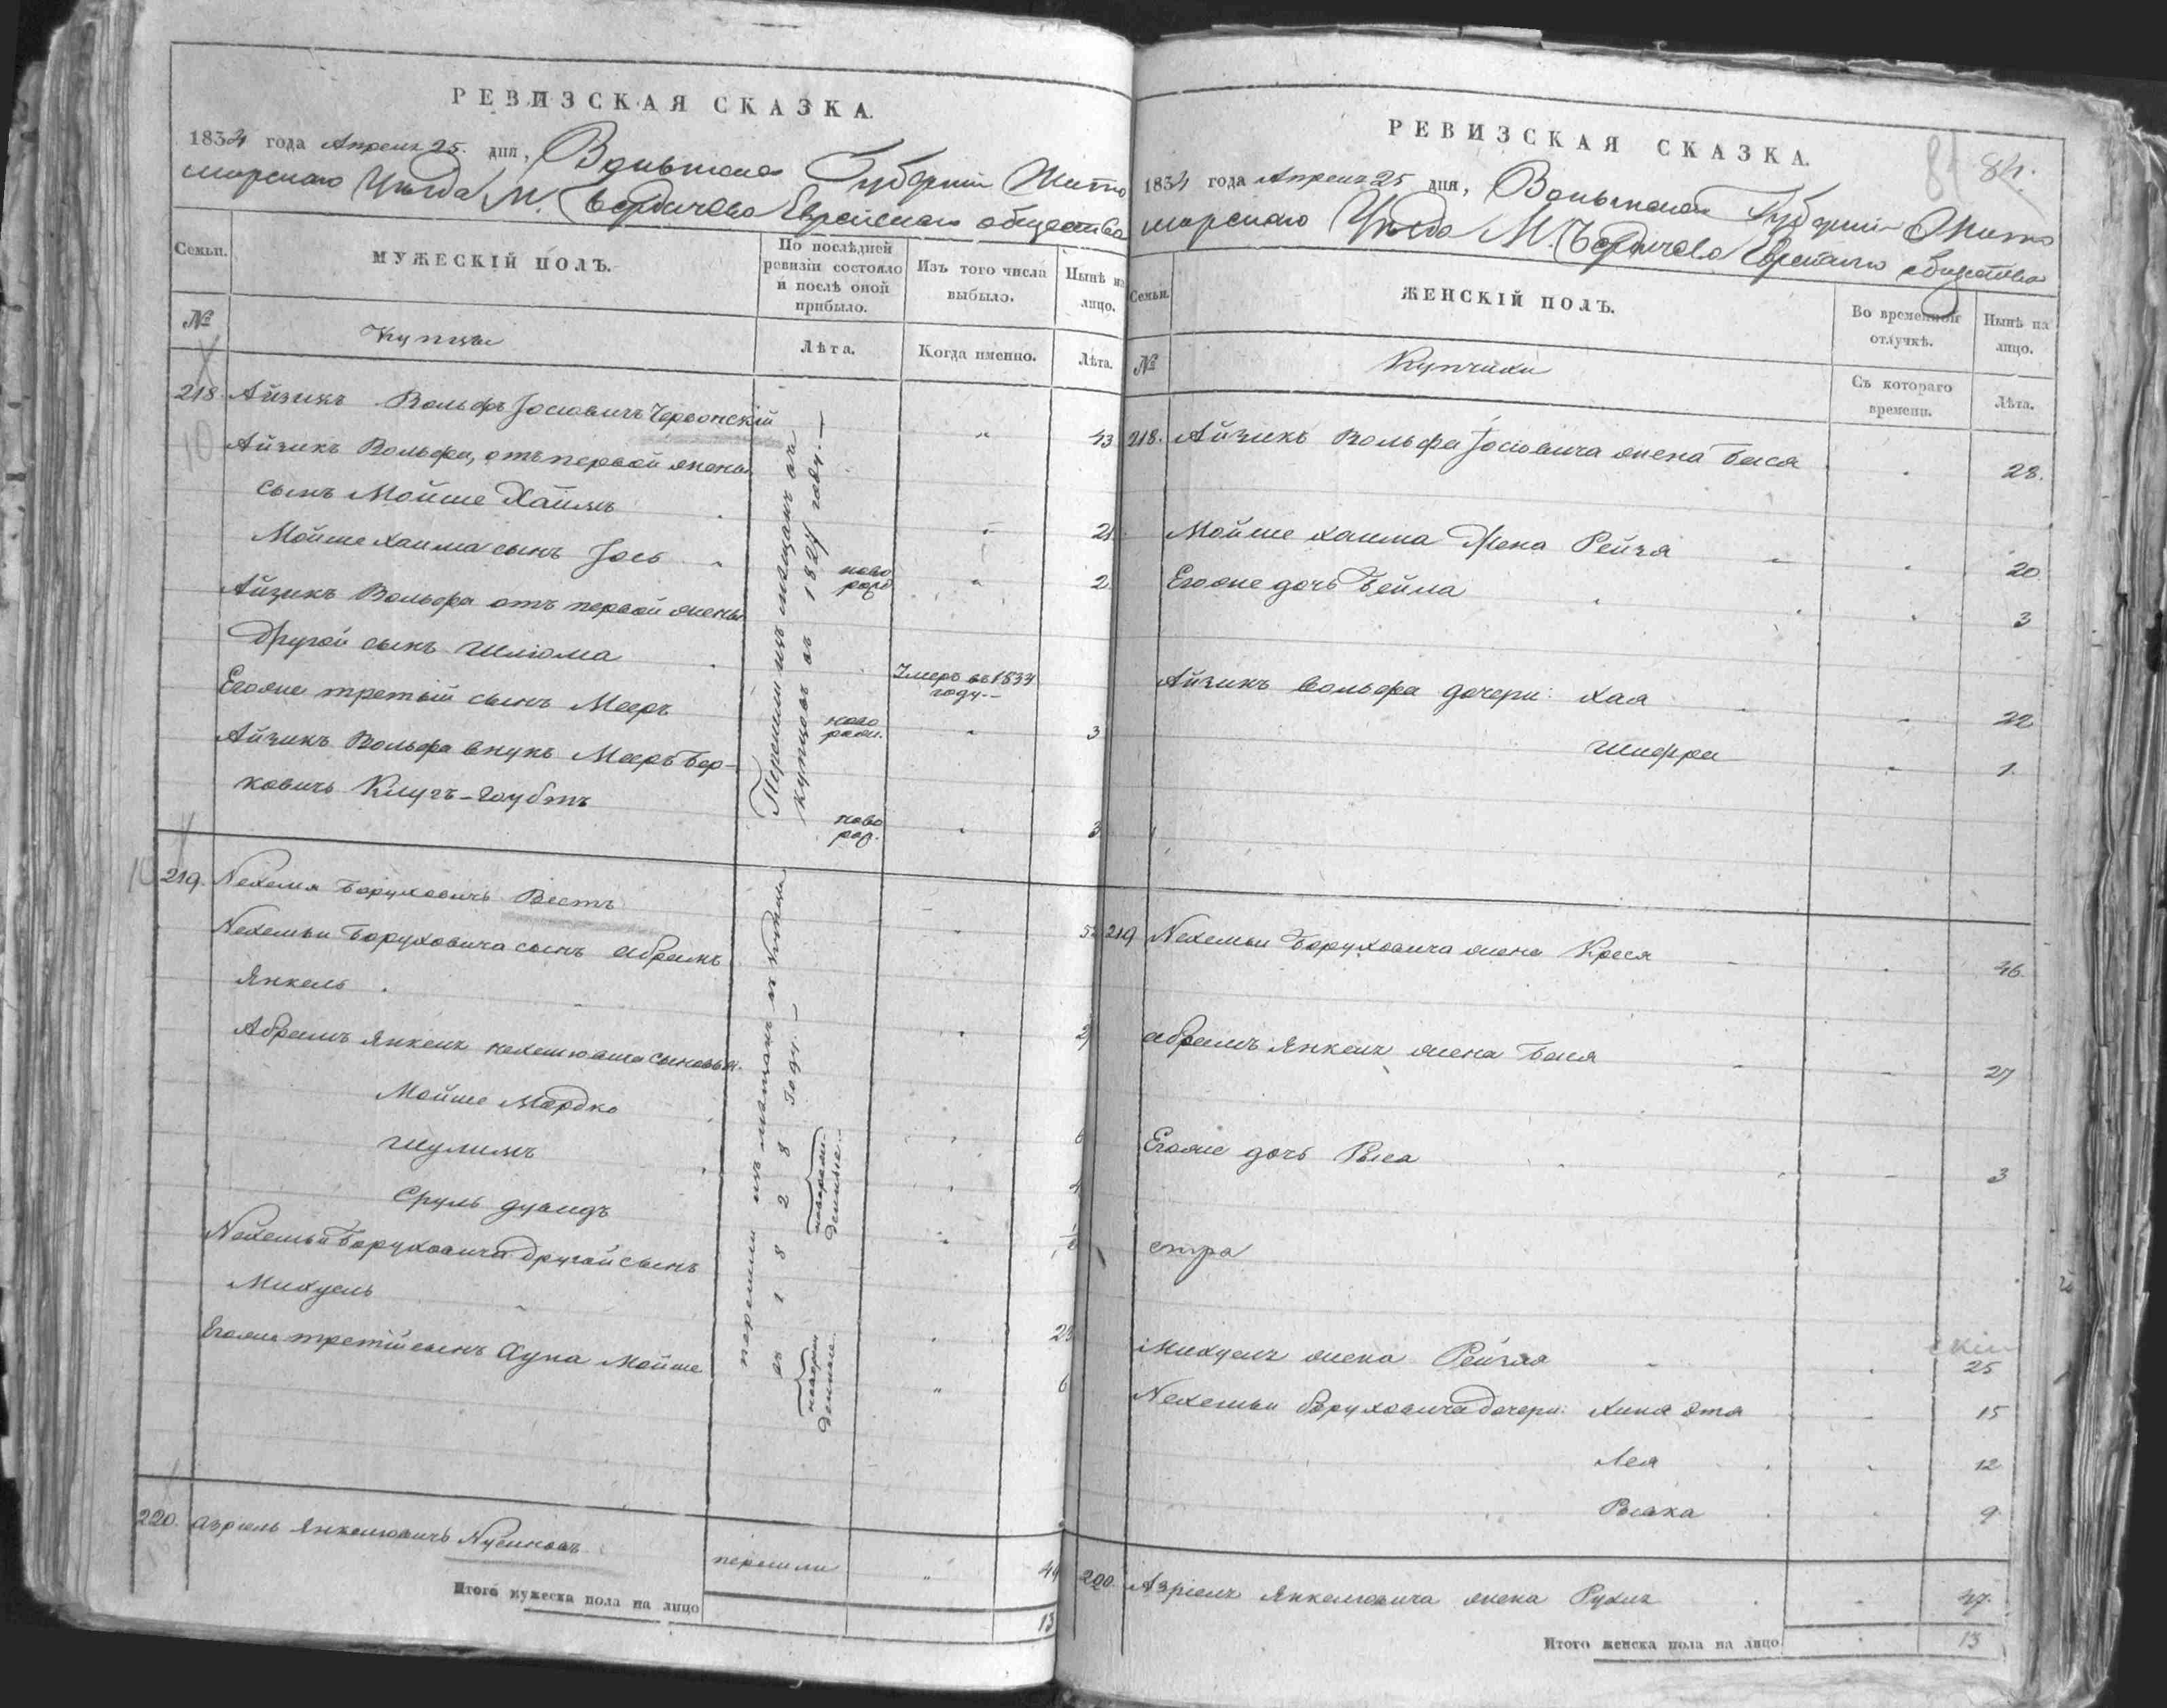 РЕВИЗСКАЯ СКАЗКА.
1834 года Апреля 25. дня, Волынской Губернии Жито
мирскаго Уезда М. Бердичева Еврейскаго общества
Семьи.
МУЖЕСКІЙ ПОЛЪ.
По послѣдней
ревизіи состояло
и послѣ оной
прибыло.
Изъ того числа
выбыло.
Нынѣ на
лицо.
№
Купцы
Лѣта.
Когда именно.
Лѣта.
218. Айзикъ Вольфъ Іосіовичъ Червонскій 43
Айзикъ Вольфа, отъ первой жены
сынъ Мойше Хаимъ 21
Мойше Хаима сынъ Іось ново рожд 2
Айзикъ Вольфа отъ первой жены
другой сынъ Шліома Умеръ въ 1834 году.
Егоже третій сынъ Мееръ ново рожд. 3
Айзикъ Вольфа внукъ Мееръ Бер-
ковичъ ново рож. 3
Перешли изъ мещанъ въ
купцовъ въ 1827 году.
219. Нехемя Боруховичъ Вестъ
Нехемьи Боруховича сынъ Абрамъ
Янкель
Абрамъ Янкеля Нехемовича сыновья
Мойше Мордко 6
Шулимъ 4
Сруль Дувидъ
новорож-
денные
Нехемьи Боруховича другой сынъ
Михуель 23
Егоже третій сынъ Мойше 6
новорож
денные
перешли изъ мещанъ въ купцы
въ 1828 году.
220. Азріель Янкеліовичъ Нусиновъ перешли 44
Итого мужеска пола на лицо 13
РЕВИЗСКАЯ СКАЗКА.
81 84.
1834 года Апреля 25 дня, Волынской Губерніи Жито
мирскаго Уезда М. Бердичева Еврейскаго общества
Семьи.
ЖЕНСКІЙ ПОЛЪ.
Во временной
отлучкѣ.
Нынѣ на
лицо.
№
Купчихи
Съ котораго
времени.
Лѣта.
218. Айзикъ Вольфа Іосіовича жена Бася 28.
Мойше Хаима Жена Рейзя 20
Егоже дочь Бейла 3
Айзикъ Вольфа дочери: Хая 22
Шифра 1.
219 Нехемьи Боруховича жена Крейся 46
Абрамъ Янкеля жена Бася 27
Егоже дочь Рыся 3
Михуеля жена Рейзля 25
Нехемьи Боруховича дочери: 15
Лея 12
9
220 Азріеля Янкеліовича жена Рухля 47.
Итого женска пола на лицо 13